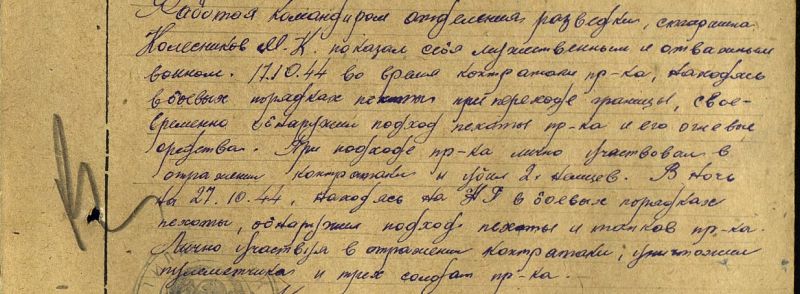 Работая командиром отделения разведки, старшина
Колесников М.К. показал себя мужественным и отважным
воином. 17.10.44 во время контратаки пр-ка, находясь
в боевых порядках пехоты при переходе границы, свое-
временно обнаружил подход пехоты пр-ка и его огневые
средства. При подходе пр-ка лично участвовал в
отражении контратаки и убил 2х немцев. В ночь
на 27.10.44, находясь на НП в боевых порядках
пехоты, обнаружил подход пехоты и танков пр-ка.
Лично участвуя в отражении контратаки, уничтожил
пулеметчика и трех солдат пр-ка.